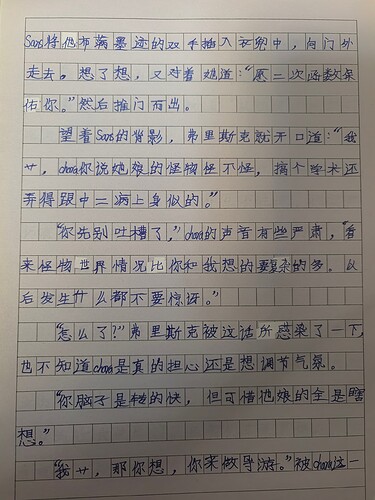 Sans将他布满墨迹的双手插入衣兜中，向门外
走去。想了想，又对着她道：“愿二次函数保
佑你。”然后推门而出。
望着Sans的背影，弗里斯克就开口道：“我
艹，chara你说他娘的怪物怪不怪，搞个学术还
弄得跟中二病上身似的。”
“你先别吐槽了，”chara的声音有些严肃，“看
来怪物世界情况比你和我想的要复杂的多。以
后发生什么都不要惊讶。”
“怎么了？”弗里斯克被这话所感染了一下，
也不知道chara是真的担心还是想调节气氛。
“你脑子是转的快，但可惜他娘的全是瞎
想。”
“我艹，那你想，你来做导游。”被chara这一